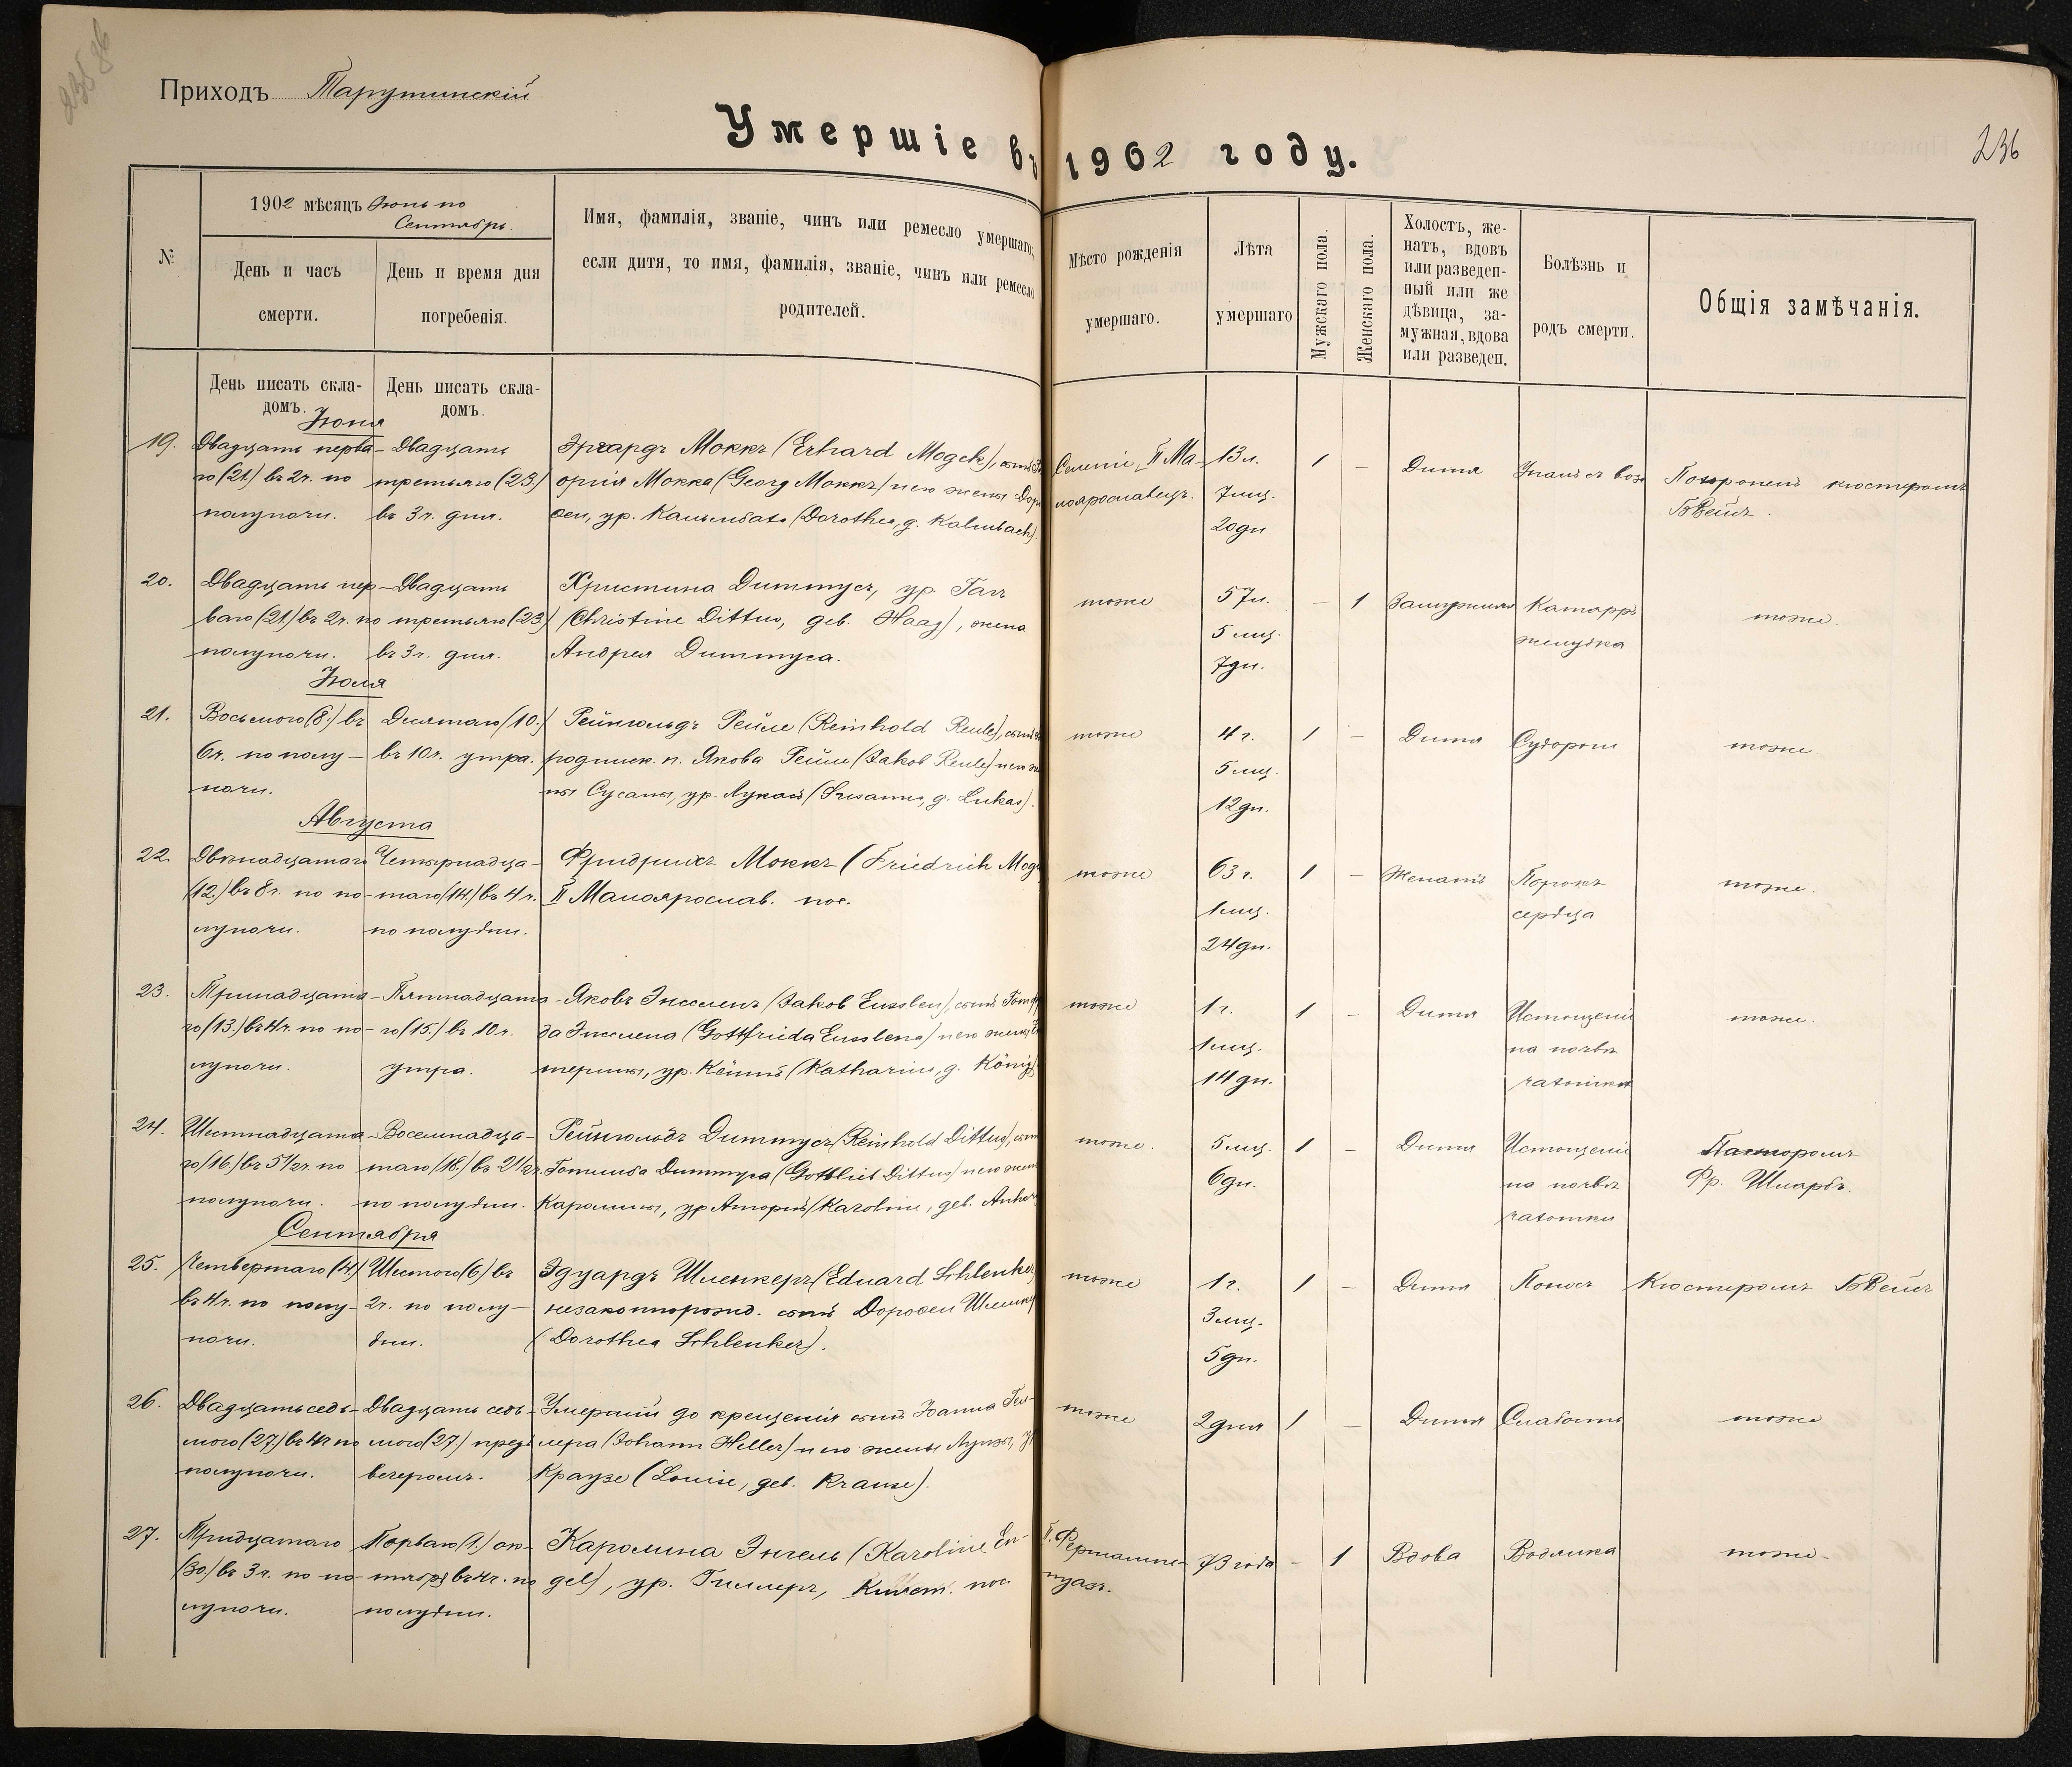 Приходъ Тарутинскій
Умершіе въ 1902 году.
236
№
1902 мѣсяцъ Іюнь по
Сентябрь.
День и часъ
смерти.
День и время дня
погребенія.
Имя, фамилія, званіе, чинъ или ремесло умершаго;
если дитя, то имя, фамилія, званіе, чинъ или ремесло
родителей.
Мѣсто рожденія
умершаго.
Лѣта
умершаго
Мужскаго пола.
Женскаго пола.
Холостъ, же-
натъ, вдовъ
или разведен-
ный или же
дѣвица, за-
мужная, вдова
или разведен.
Болѣзнь и
родъ смерти.
Общія замѣчанія.
День писать скла-
домъ.
День писать скла-
домъ.
Іюня
19.
Двадцать перва-
го (21.) въ 2ч. по
полуночи.
Двадцать
третьяго (23.)
въ 3 ч. дня.
Эргардъ Моккъ (Erhard Mogck), сынъ
оргія Мокка (Georg Моккъ) и его жены
ѳеи, ур. Кальмбахъ (Dorothea, g. Kalmbach).
Селеніи II Ма-
лоярославецъ.
13 л.
7 мц.
20 дн.
1
–
Дитя
Упалъ съ воза
Похороненъ кюстеромъ
Б. Вейсъ.
20.
Двадцать пер-
ваго (21.) въ 2ч. по
полуночи.
Двадцать
третьяго (23.)
въ 3 ч. дня.
Христина Диттусъ, ур. Гагъ
(Christine Dittus, geb. Haag), жена
Андрея Диттуса.
тоже
57 л.
5 мц.
7 дн.
–
1
Замужняя
Катарръ
желудка
тоже.
Іюля
21.
Восьмого (8.) въ
6ч. по полу-
ночи.
Десятаго (10.)
въ 10ч. утра.
Рейнгольдъ Рейле (Reinhold Reule), сынъ
родинск. п. Якова Рейле (Jakob Reule) и его
ны Сусаны, ур. Лукасъ (Susanna, g. Lukas).
тоже
4 г.
5 мц.
12 дн.
1
–
Дитя
Судороги
тоже.
Августа
22.
Двѣнадцатаго
(12.) въ 8 ч. по по-
луночи.
Четырнадца-
таго (14.) въ 4 ч.
по полудни.
Фридрихъ Моккъ (Friedrich
II Малоярослав. пос.
тоже
63 г.
1 мц.
24 дн.
1
–
Женатъ
Порокъ
сердца
тоже.
23.
Тринадцата-
го (13.) въ 4ч. по по-
луночи.
Пятнадцата-
го (15.) въ 10 ч.
утра.
Яковъ Энсленъ (Jakob Eusslen), сынъ
да Энслена (Gottfrieda Eusslena) и его жены
терины, ур. Кёнигъ (Katharina, g. König)
тоже
1 г.
1 мц.
14 дн.
1
–
Дитя
Истощеніе
на почвѣ
чахотки
тоже.
24.
Шестнадцата-
го (16.) въ 5 1/2 ч. по
полуночи.
Восемнадца-
таго (18.) въ 2 1/2 ч.
по полудни.
Рейнгольдъ Диттусъ (Reinhold Dittus), сын
Готлиба Диттуса (Gottlieb Dittus) и его жен
Каролины, ур. Анхорнъ (Karoline, geb.
тоже.
5 мц.
6 дн.
1
–
Дитя
Истощеніе
на почвѣ
чахотки
Пасторомъ
Фр. Шларъ.
Сентября
25.
Четвертаго (4.)
въ 4 ч. по полу-
ночи.
Шестого (6.) въ
2 ч. по полу-
дни.
Эдуардъ Шленкеръ (Eduard Schlenker
незаконнорожд. сынъ Дороѳеи
(Dorothea Schlenker).
тоже
1 г.
3 мц.
5 дн.
1
–
Дитя
Поносъ
Кюстеромъ Б. Вейсъ
26.
Двадцать седь-
мого (27.) въ 4 ч. по
полуночи.
Двадцать седь-
мого (27.) предъ
вечеромъ.
Умершій до крещенія сынъ Іоанна Гел-
лера (Johann Heller) и его жены Луизы,
Краузе (Louise, geb. Krause).
тоже
2 дня
1
–
Дитя
Слабость
тоже
27.
Тридцатаго
(30.) въ 3 ч. по по-
луночи.
Перваго (1.) ок-
тября въ 4 ч. по
полудни.
Каролина Энгель (Karoline En-
gel), ур. Гиллеръ, пос
73 года
–
1
Вдова
Водянка
тоже.